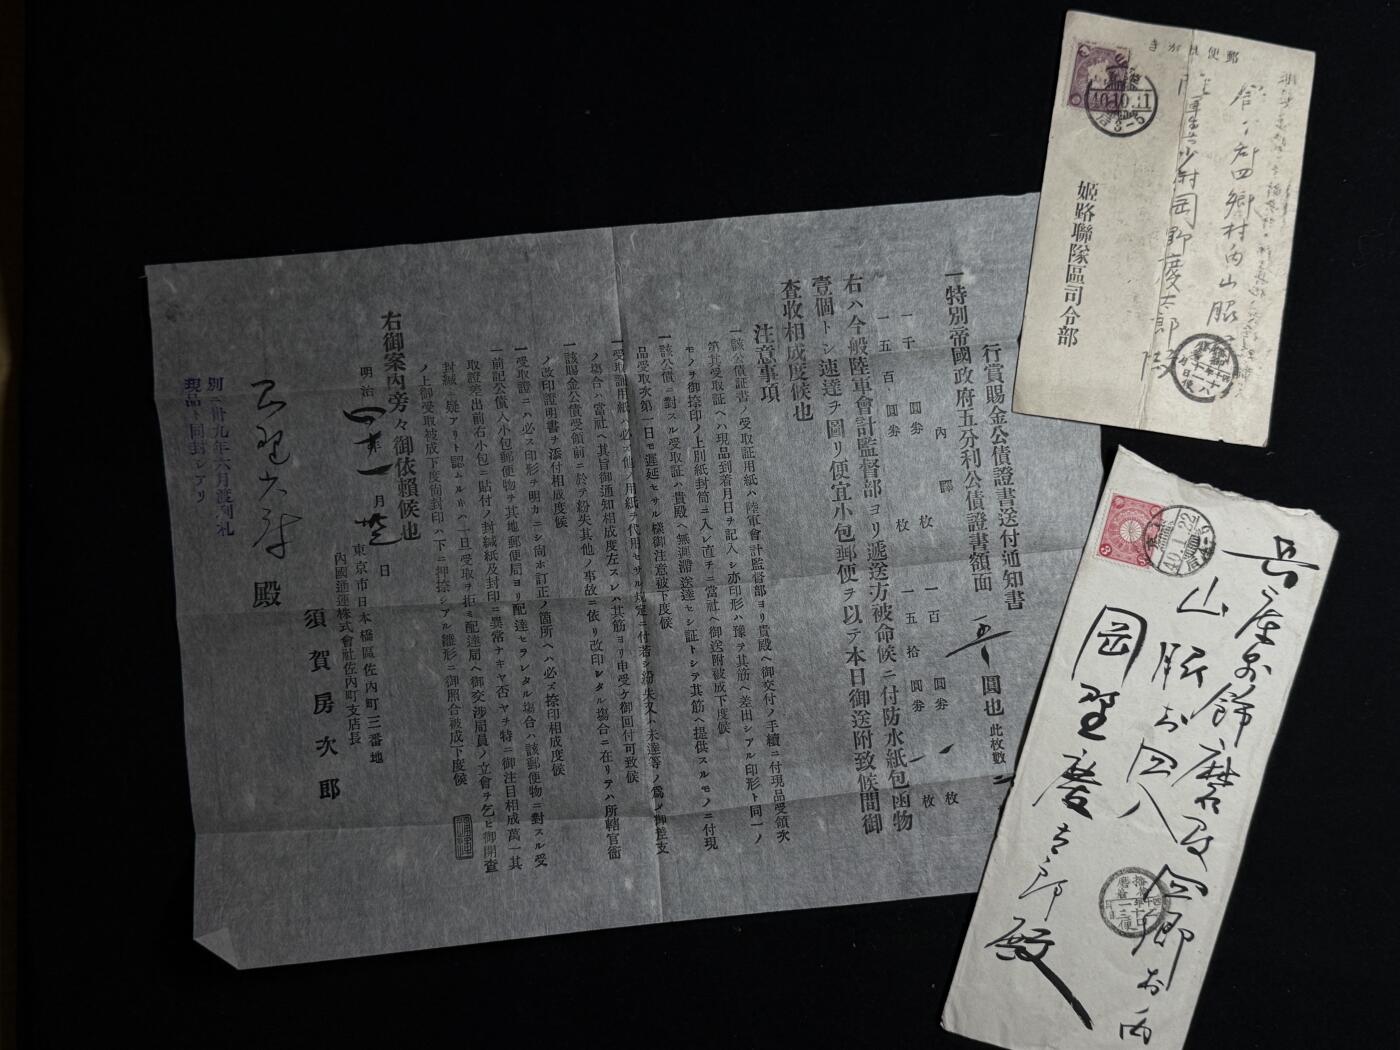 行賞賜金公債證書送付通知書
一特別帝國政府五分利公債證書額面
圓也
此枚數
內譯
一千圓劵
枚
一百圓劵
枚
一五百圓劵
枚
一五拾圓劵
枚
右ハ今般陸軍會計監督部ヨリ遞送方被命候ニ付防水紙包函物
壹個トシ速達ヲ圖リ便宜小包郵便ヲ以テ本日御送附致候間御
查收相成度候也
注意事項
一該公債証書ノ受取証用紙ハ陸軍會計監督部ヨリ貴殿ヘ御交付ノ手續ニ付現品受領次
第其受取証ヘハ現品到着月日ヲ記入シ亦印形ハ豫テ其筋ヘ差出シアル印形ト同一ノ
モノヲ御捺印ノ上別紙封筒ニ入レ直チニ當社ヘ御送附被成下度候
一該公債ニ對スル受取証ハ貴殿ヘ無漏滯送達セシ証トシテ其筋ヘ提供スルモノニ付現
品受取次第一日モ遲延セサル樣御注意被下度候
一受取証用紙ハ必ス他ノ用紙ヲ代用セサル規定ニ付若シ紛失又ハ未達等ノ爲メ御差支
ノ場合ハ當社ヘ其旨御通知相成度左スレハ其筋ヨリ申受ケ御回付可致候
一該賜金公債受領前ニ於テ紛失其他ノ事故ニ依リ改印シタル塲合ニ在リテハ所轄官衙
ノ改印證明書ヲ添付相成度候
一受取證ニハ必ス印形ヲ明カニシ尚ホ訂正ノ箇所ヘハ必ス捺印相成度候
一前記公債入小包郵便物ヲ其地郵便局ヨリ配達セラレタル塲合ハ該郵便物ニ對スル受
取證差出前右小包ニ貼付ノ封緘紙及封印ニ異常ナキヤ否ヤヲ特ニ御注目相成萬一其
封緘ニ疑アリト認ムルキハ一旦受取ヲ拒ミ配達局ヘ御交涉局員ノ立會ヲ乞ヒ御開查
ノ上御受取被成下度尚封印ハ下ニ押捺シアル雛形ニ御照合被成下度候
右御案內旁々御依賴候也
明治四十年一月
日
東京市日本橋區佐內町三番地
內國通運株式會社佐內町支店長
須賀房次郎
殿
別ニ卅九年六月渡利札
現品ト同封シアリ
郵便はがき
40.10.11
3-5
陸軍步兵少尉岡野慶太郎殿
姬路聯隊區司令部
40.1.29
兵庫縣飾磨郡四鄉村ノ內
山脇村
岡野慶太郎殿